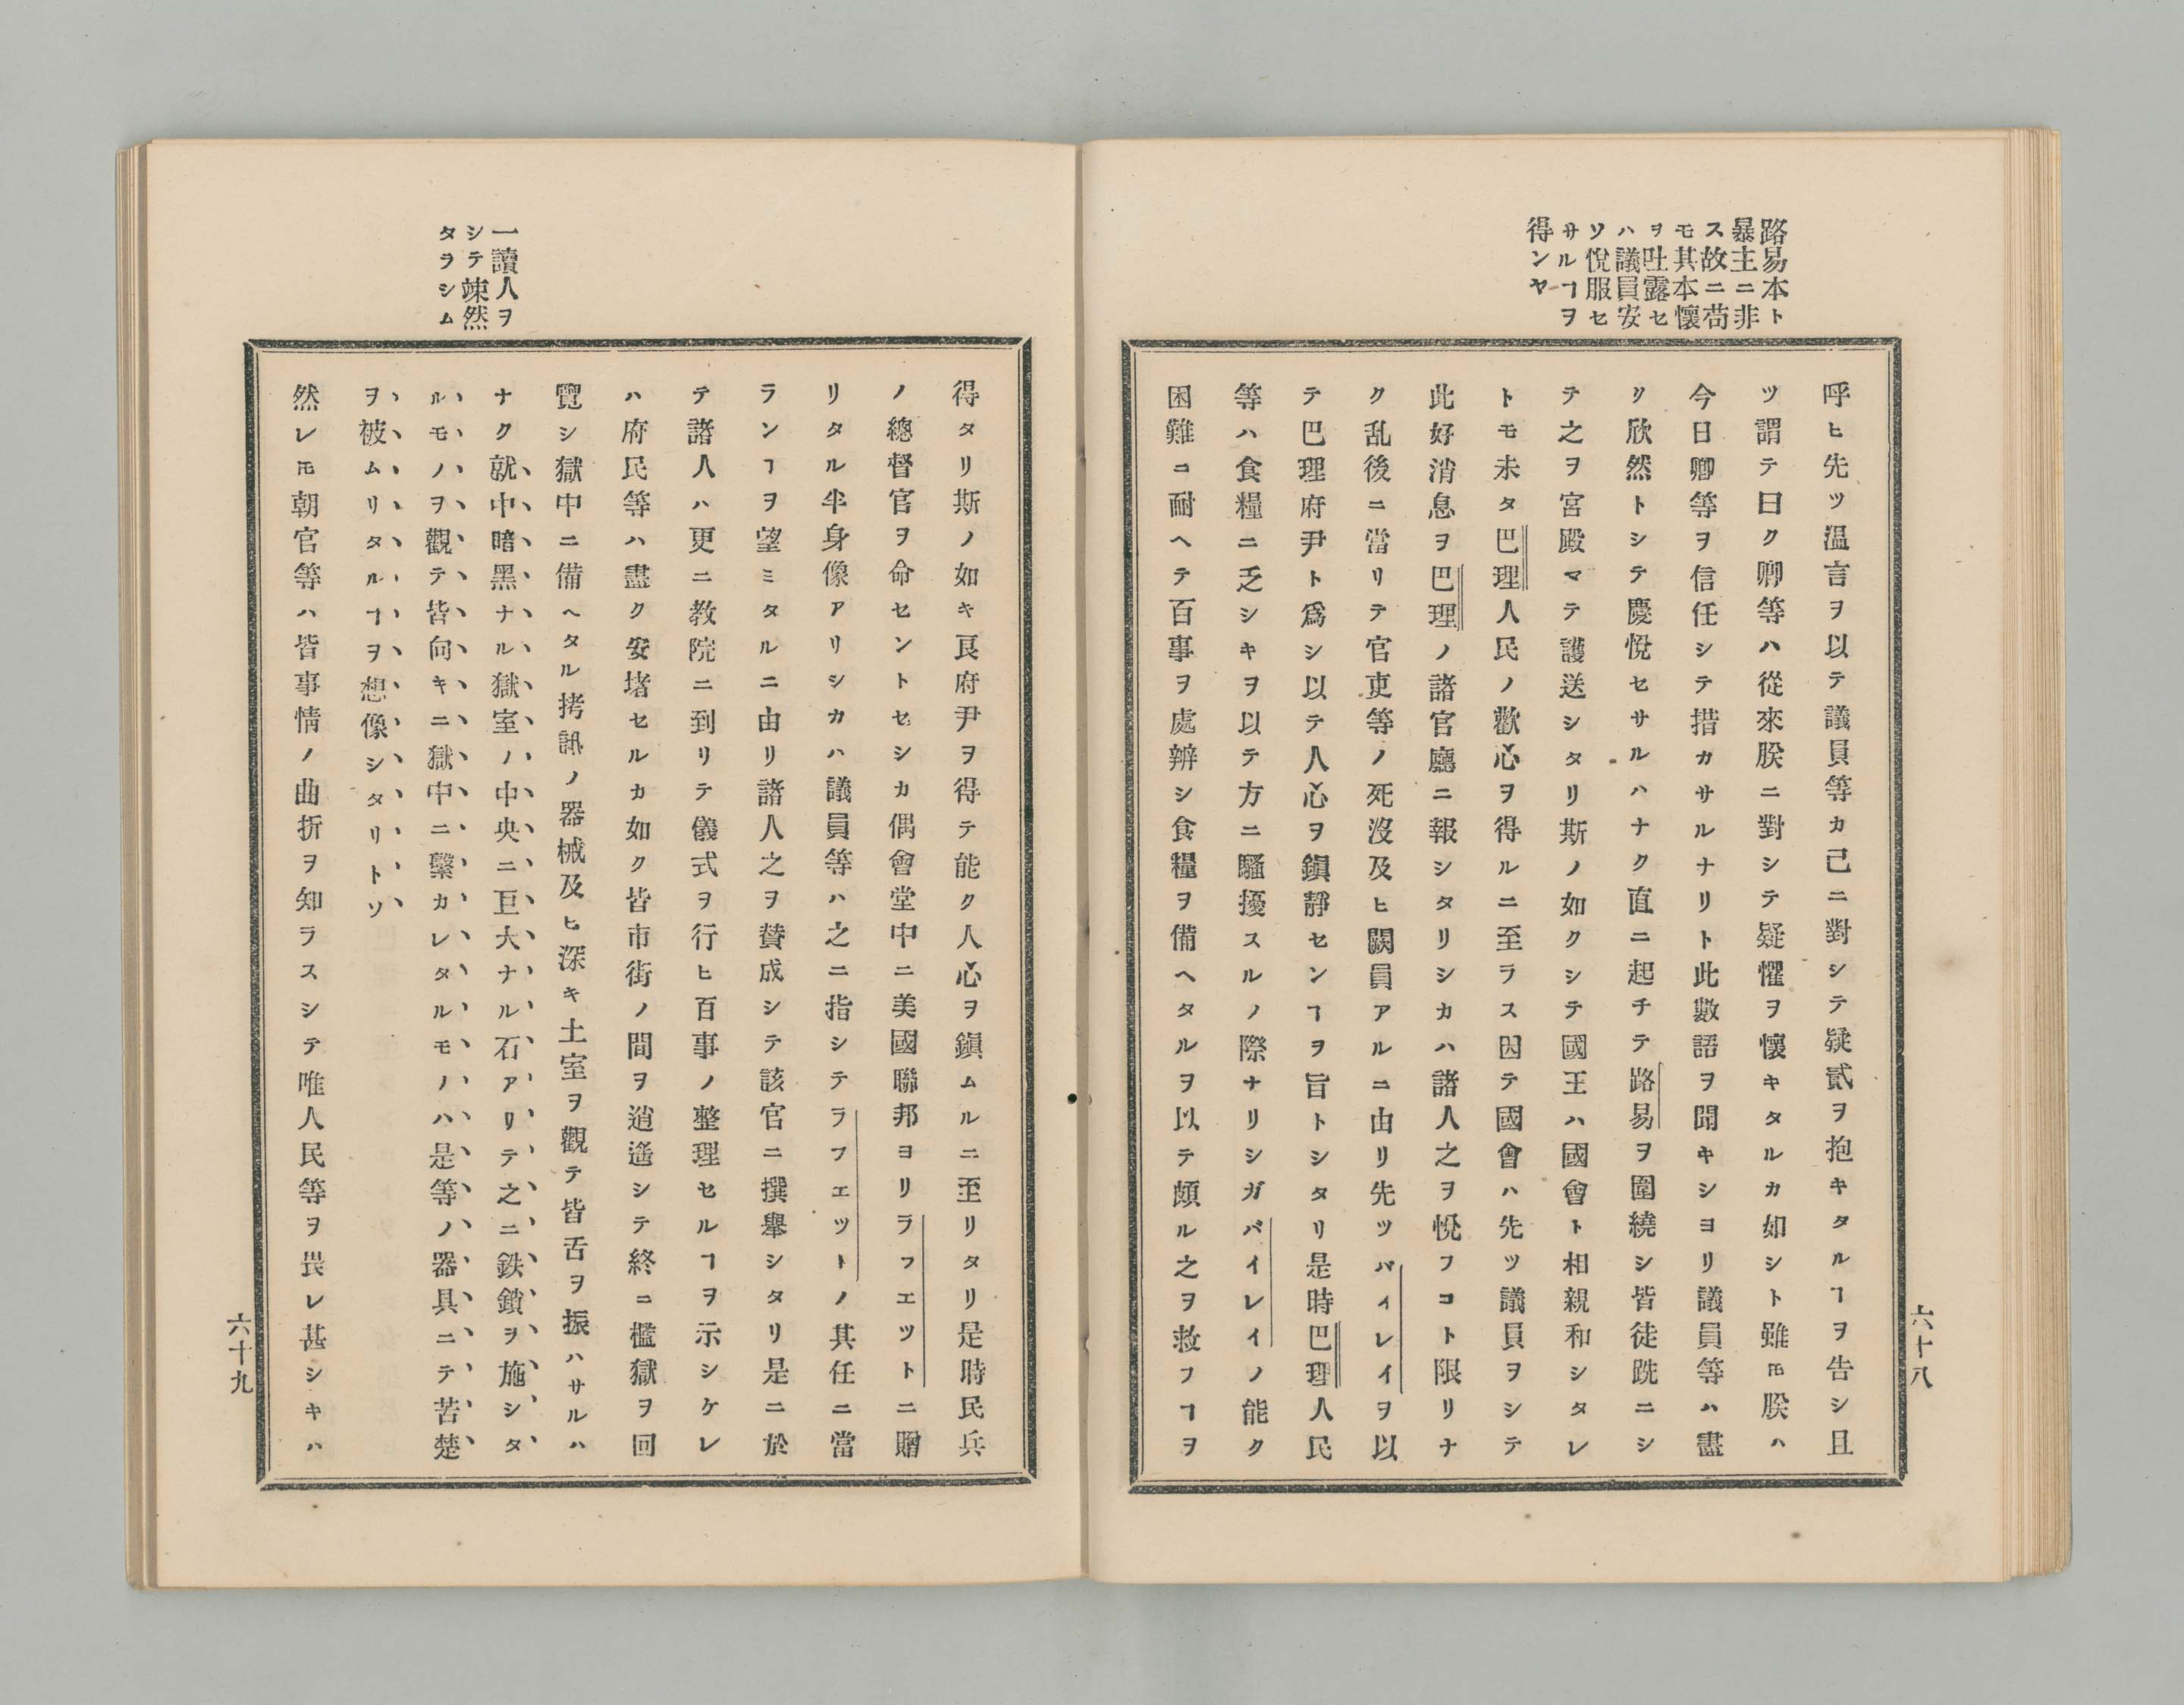 路易本ト
暴主ニ非
ス故ニ苟
モ其本懷
ヲ吐露セ
ハ議員安
ソ悅服セ
サルヿヲ
得ンヤ
呼ヒ先ツ温言ヲ以テ議員等カ己ニ對シテ疑貳ヲ抱キタルヿヲ告シ且
ツ謂テ曰ク卿等ハ從來朕ニ對シテ疑懼ヲ懷キタルカ如シト雖𪜈朕ハ
今日卿等ヲ信任シテ措カサルナリト此數語ヲ聞キシヨリ議員等ハ盡
ク欣然トシテ慶悅セサルハナク直ニ起チテ路易ヲ圍繞シ皆徒跣ニシ
テ之ヲ宮殿マテ護送シタリ斯ノ如クシテ國王ハ國會ト相親和シタレ
トモ未タ巴理人民ノ歡心ヲ得ルニ至ラス因テ國會ハ先ツ議員ヲシテ
此好消息ヲ巴理ノ諸官廳ニ報シタリシカハ諸人之ヲ悅フコト限リナ
ク乱後ニ當リテ官吏等ノ死沒及ヒ闕員アルニ由リ先ツバイレイヲ以
テ巴理府尹ト爲シ以テ人心ヲ鎭靜センヿヲ旨トシタリ是時巴理人民
等ハ食糧ニ乏シキヲ以テ方ニ騷擾スルノ際ナリシガバイレイノ能ク
困難ニ耐ヘテ百事ヲ處辨シ食糧ヲ備ヘタルヲ以テ頗ル之ヲ救フヿヲ
六十八
一讀人ヲ
シテ竦然
タラシム
得タリ斯ノ如キ良府尹ヲ得テ能ク人心ヲ鎭ムルニ至リタリ是時民兵
ノ總督官ヲ命セントセシカ偶會堂中ニ美國聯邦ヨリラフエツトニ贈
リタル半身像アリシカハ議員等ハ之ニ指シテラフエツトノ其任ニ當
ランヿヲ望ミタルニ由リ諸人之ヲ賛成シテ該官ニ撰擧シタリ是ニ於
テ諸人ハ更ニ教院ニ到リテ儀式ヲ行ヒ百事ノ整理セルヿヲ示シケレ
ハ府民等ハ盡ク安堵セルカ如ク皆市街ノ間ヲ逍遙シテ終ニ檻獄ヲ回
覽シ獄中ニ備ヘタル拷訊ノ器械及ヒ深キ土室ヲ觀テ皆舌ヲ振ハサルハ
ナク就中暗黑ナル獄室ノ中央ニ巨大ナル石アリテ之ニ鉄鎖ヲ施シタ
ルモノヲ觀テ皆向キニ獄中ニ繫カレタルモノハ是等ノ器具ニテ苦楚
ヲ被ムリタルヿヲ想像シタリトソ
然レ𪜈朝官等ハ皆事情ノ曲折ヲ知ラスシテ唯人民等ヲ畏レ甚シキハ
六十九